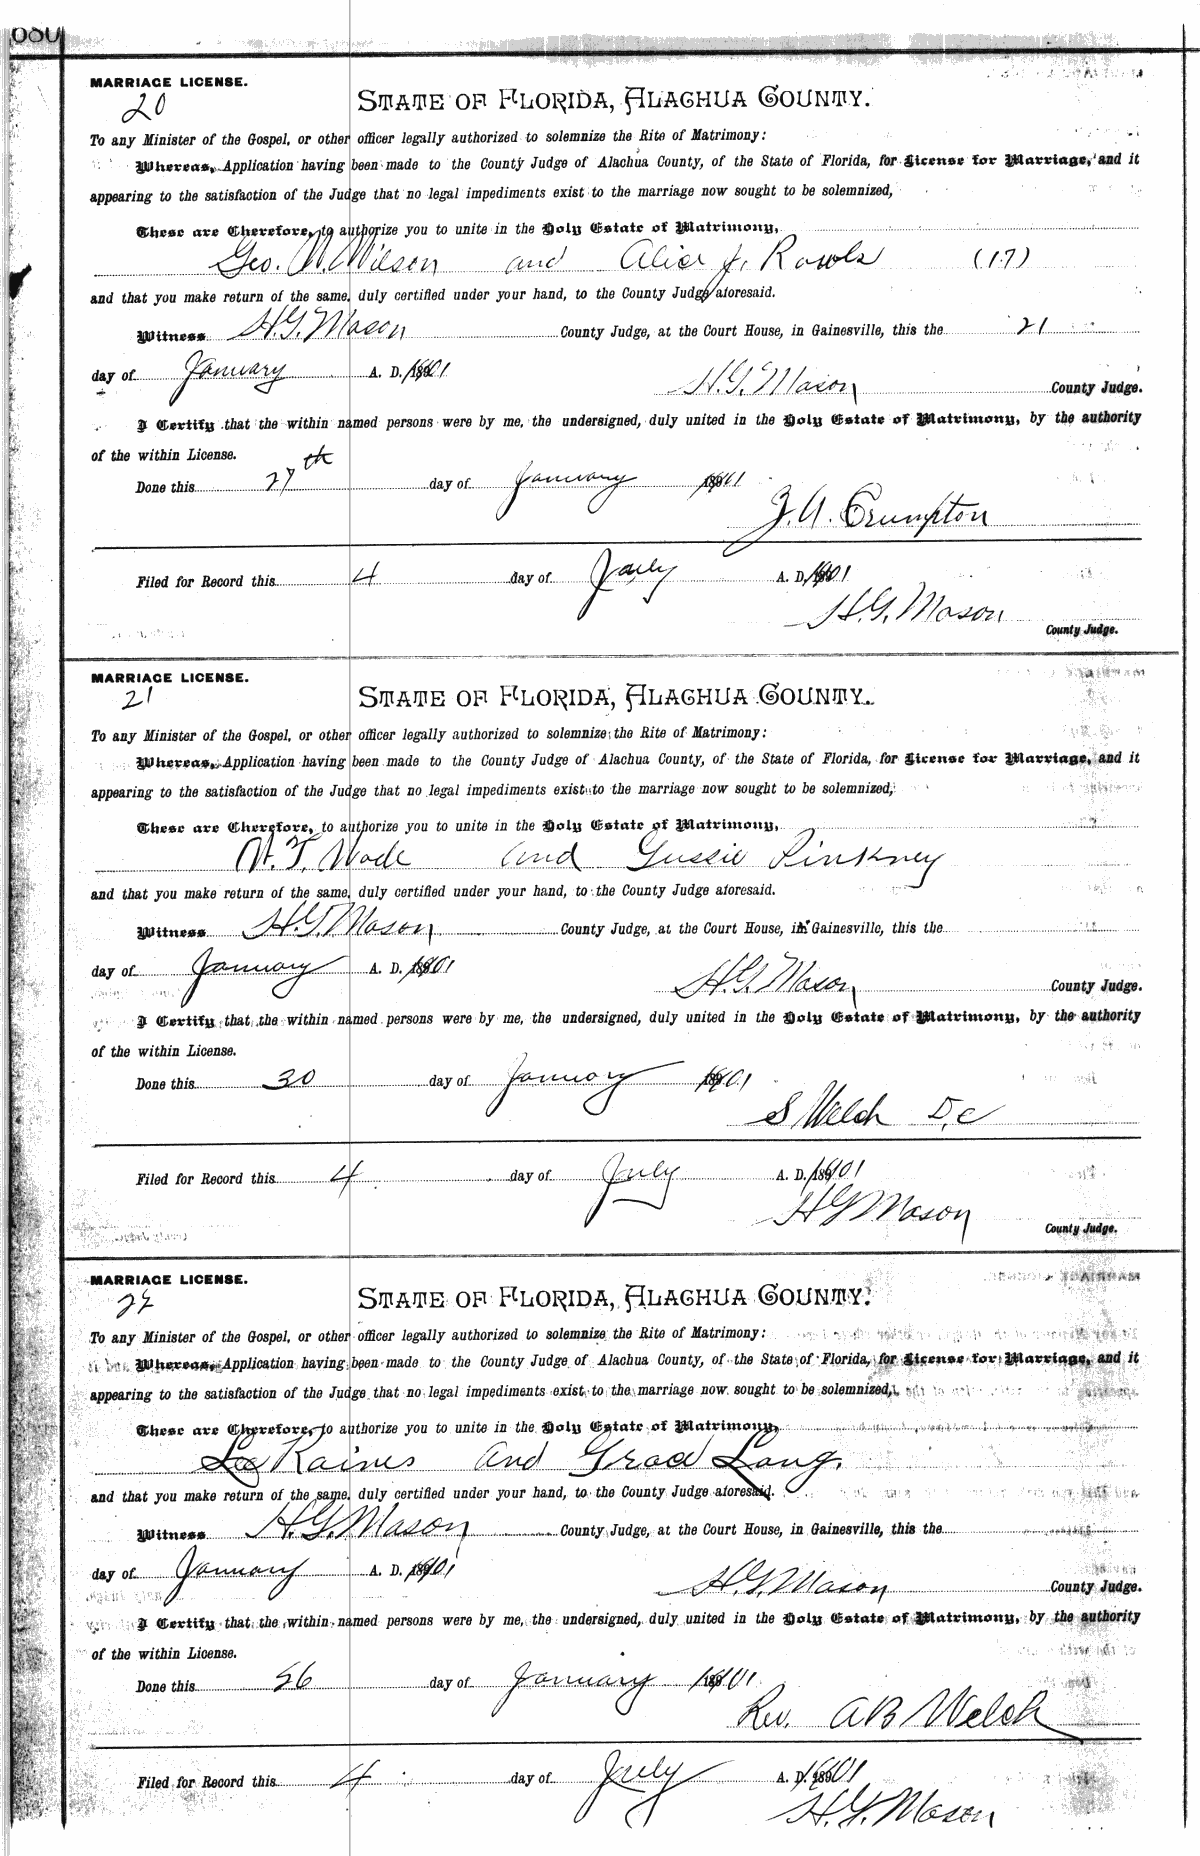 680
MARRIAGE LICENSE.
20
STATE OF FLORIDA, ALACHUA COUNTY.
To any Minister of the Gospel, or other officer legally authorized to solemnize the Rite of Matrimony:
Whereas, Application having been made to the County Judge of Alachua County, of the State of Florida, for License for Marriage, and it
appearing to the satisfaction of the Judge that no legal impediments exist to the marriage now sought to be solemnized,
These are Therefore, to authorize you to unite in the Holy Estate of Matrimony,
Geo. W. Wilson and Alice J. Rawls (17)
and that you make return of the same, duly certified under your hand, to the County Judge aforesaid.
Witness H.G. Mason County Judge, at the Court House, in Gainesville, this the 21
day of January A. D. 1901 H.G. Mason County Judge.
I Certify that the within named persons were by me, the undersigned, duly united in the Holy Estate of Matrimony, by the authority
of the within License.
Done this 27th day of January 1901
J.A. Crumpton
Filed for Record this 4 day of July A. D. 1901
H.G. Mason
County Judge.
MARRIAGE LICENSE.
21
STATE OF FLORIDA, ALACHUA COUNTY.
To any Minister of the Gospel, or other officer legally authorized to solemnize the Rite of Matrimony:
Whereas, Application having been made to the County Judge of Alachua County, of the State of Florida, for License for Marriage, and it
appearing to the satisfaction of the Judge that no legal impediments exist to the marriage now sought to be solemnized,
These are Therefore, to authorize you to unite in the Holy Estate of Matrimony,
W.T. Wade and Gussie Pinkney
and that you make return of the same, duly certified under your hand, to the County Judge aforesaid.
Witness H.G. Mason County Judge, at the Court House, in Gainesville, this the
day of January A. D. 1901 H.G. Mason County Judge.
I Certify that the within named persons were by me, the undersigned, duly united in the Holy Estate of Matrimony, by the authority
of the within License.
Done this 30 day of January 1901
S Welch D.C
Filed for Record this 4 day of July A. D. 1901
H G Mason
County Judge.
MARRIAGE LICENSE.
22
STATE OF FLORIDA, ALACHUA COUNTY.
To any Minister of the Gospel, or other officer legally authorized to solemnize the Rite of Matrimony:
Whereas, Application having been made to the County Judge of Alachua County, of the State of Florida, for License for Marriage, and it
appearing to the satisfaction of the Judge that no legal impediments exist to the marriage now sought to be solemnized,
These are Therefore, to authorize you to unite in the Holy Estate of Matrimony,
Lee Raines and Grace Long.
and that you make return of the same, duly certified under your hand, to the County Judge aforesaid.
Witness H.G. Mason County Judge, at the Court House, in Gainesville, this the
day of January A. D. 1901 H.G. Mason County Judge.
I Certify that the within named persons were by me, the undersigned, duly united in the Holy Estate of Matrimony, by the authority
of the within License.
Done this 26 day of January 1901
Rev. A B Welch
Filed for Record this 4 day of July A. D. 1901
H.G. Mason